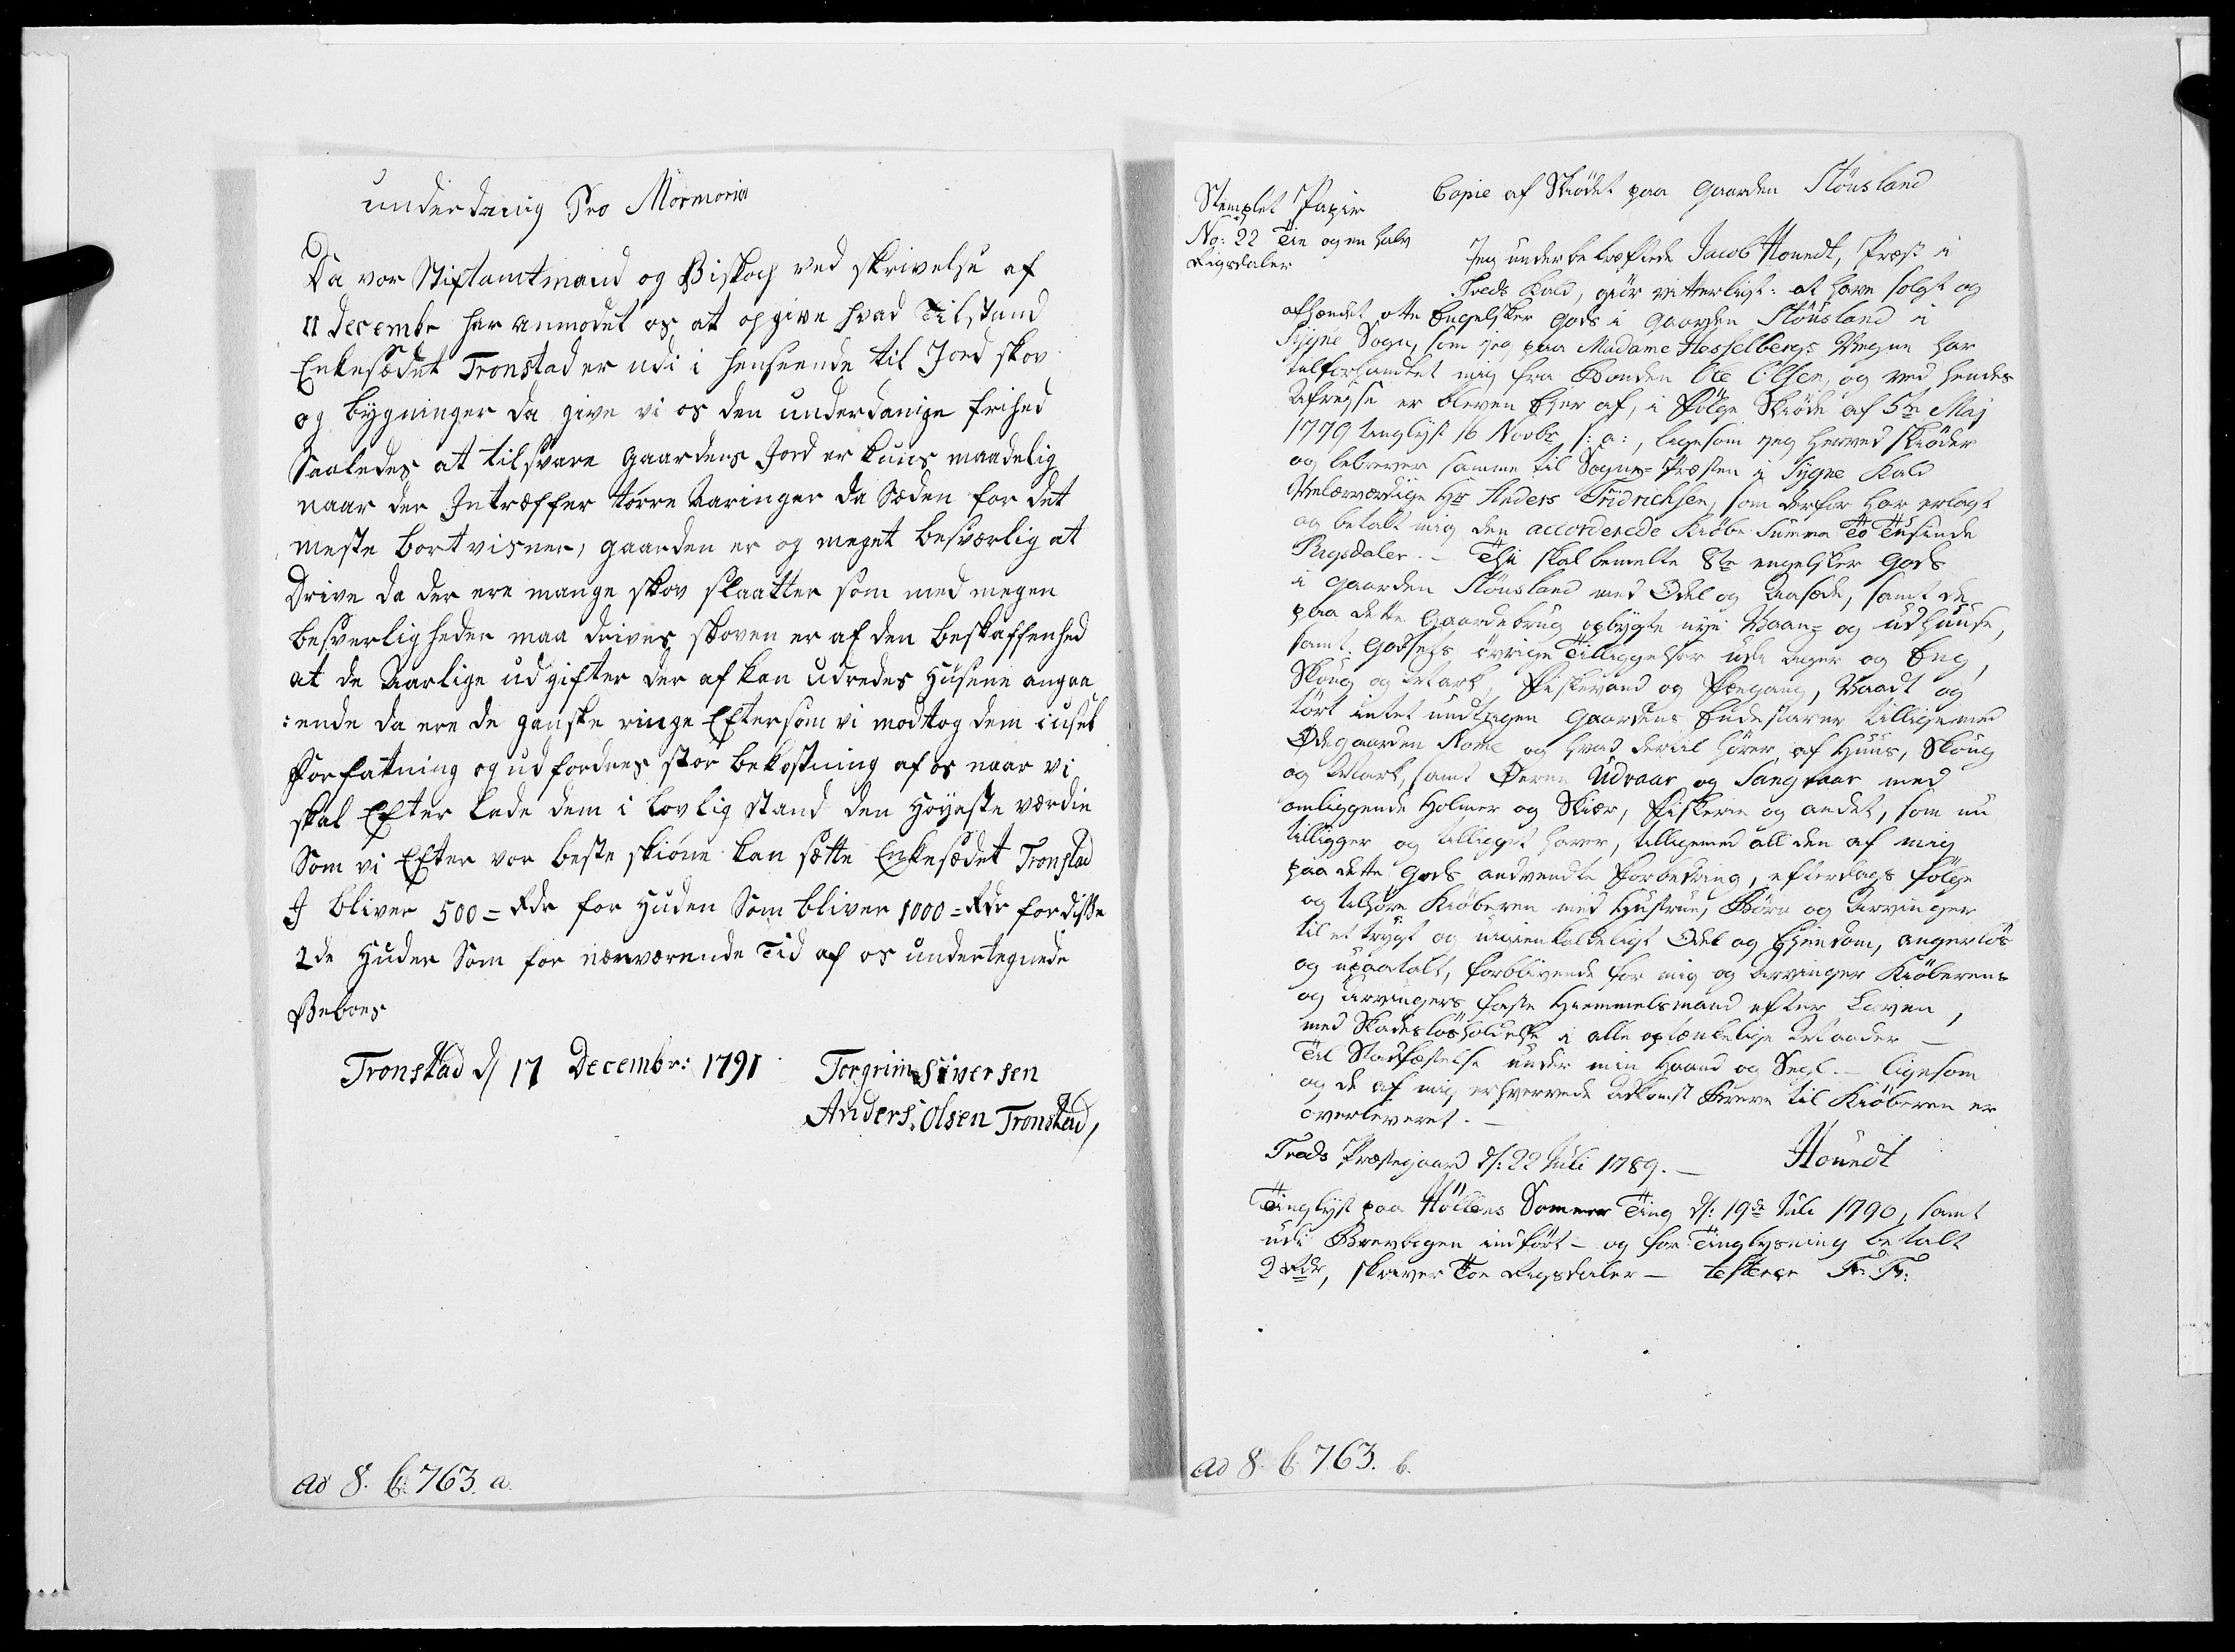 underdanig Pro Mormoria
Da vor Stiftamtmand og Biskop ved skrivelse af
11 decembr har anmodet os at opgive hvad Tilstand
Enkesædet Tronstad er udi i henseende til Jord skov
og bygninger da give vi os den underdanige frihed
Saaledes at tilsvare gaardens Jord er kuns maadelig
naar der Intræffer tørre Aaringer da Sæden for det
meste bortvisner, gaarden er og meget besværlig at
Drive da der ere mange skov slaatter som med megen
besverligheder maa drives skoven er af den beskaffenhed
at de Aarlige udgifter der af kan udredes Husene angaa
:ende da ere de ganske ringe Eftersom vi modtog dem i usel
Forfatning og udfordres stor bekostning af os naar vi
skal Efter lade dem i lovlig stand den Høyeste værdie
Som vi Efter vor beste skiøne kan sætte Enkesædet Tronstad
J bliver 500 = Rdr for Huden Som bliver 1000 = Rdr for disse
2de Huder Som for nærværende Tid af os undertegnede
Beboes
Tronstad d 17 Decembr: 1791
Torgrim Siversen
Anders Olsen Tronstad,
ad 8. b. 763. a.
Copie af Skiødet paa Gaarden Stöusland
Stemplet Papir
No: 22 Tie og en halv
Rigsdaler
Jeg underbekræftede Jacob Houedt, Præst i
Treds Kald, giör vitterligt: at have solgt og
afhændet otte Engelsker Gods i Gaarden Stöusland i
Sygne Sogn, som jeg paa Madame Hesselbergs Vegne har
tilforhandlet mig fra Bonden Ole Olsen, og ved hendes
Afreyse er bleven Eyer af, i Følge Skiøde af 5te Maj
1779 tinglyst 16 Novbr s: a:, ligesom jeg herved skiøder
og leverer samme til Sogne-Præsten i Sygne Kald
Velærværdige Hr Anders Fridrichsen, som derfor har erlagt
og betalt mig den accorderede Kiøbe Summa To Tusinde
Rigsdaler. – Thi skal bemelte 8te engelsker Gods
i Gaarden Stöusland med Odel og Aasæde, samt de
paa dette Gaardebrug opbygte nye Vaan- og udhuuse,
samt Godsets övrige Tilliggelser udi Ager og Eng,
Skoug og Mark, Fiskevand og Fægang, Vaadt og
tört intet undtagen Gaardens tilligemed
Ödegaarden Rome og hvad dertil hører af Huus, Skoug
og Mark, samt Øerne Udvaar og Sangvaar med
omliggende Holmer og Skiær, Fiskerie og andet, som nu
tilligger og tilligget haver, tilligemed all den af mig
paa dette Gods anvendte Forbedring, efterdags følge
og tilhøre Kiøberen med Hustrue, Børn og Arvinger
til et trygt og uigienkaldeligt Odel og Eyendom, angerlös
og upaatalt, forblivende for mig og Arvinger Kiøberens
og Arvingers faste Hiemmelsmand efter Loven,
med Skadeslösholdelse i alle optænkelige Maader –
Til Stadfæstelse under min Haand og Segl. – ligesom
og de af mig erhvervede Adkomst Breve til Kiøberen er
overleveret. –
Treds Præstegaard d: 22 Juli 1789. –
Houedt
Tinglyst paa Höllens Sommer Ting d: 19de Juli 1790, samt
udi Brevbogen indført – og for Tinglysning betalt
2 Rdr, skriver Toe Rigsdaler – testerer Fr: Fr:
ad 8. b. 763. b.